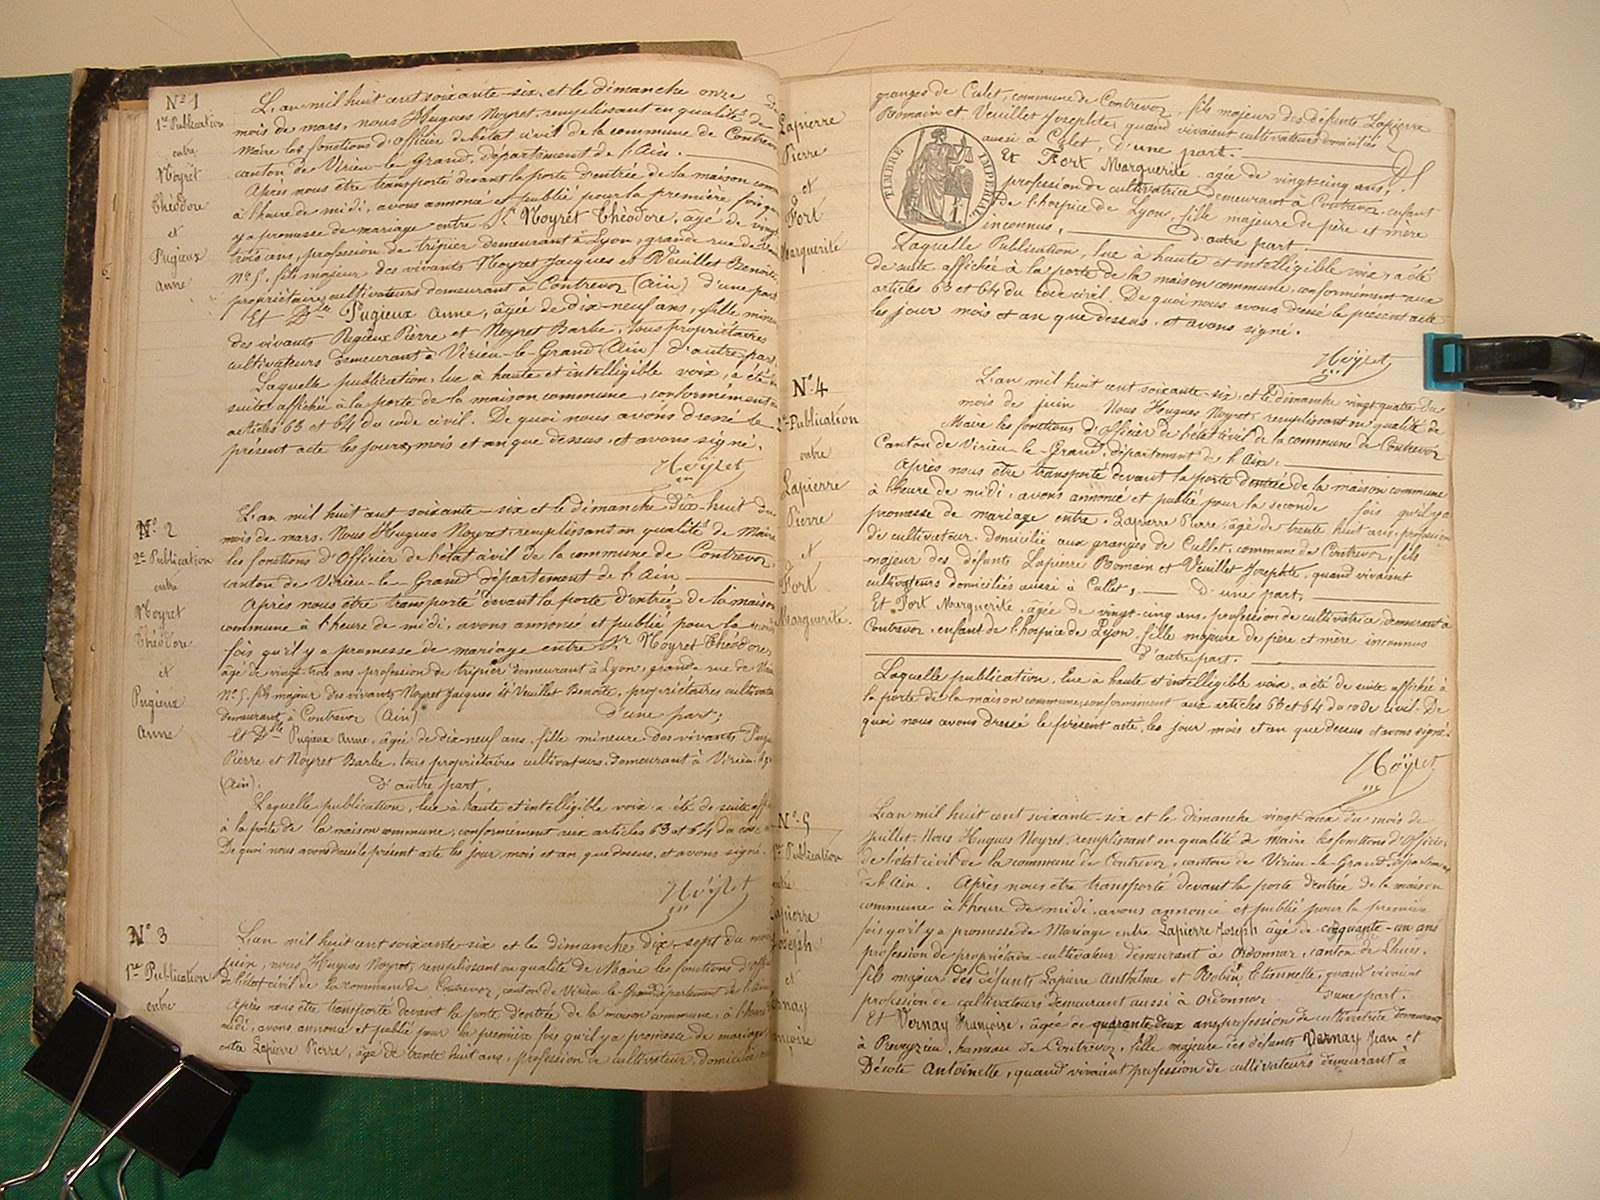 Nº 1
1re Publication
entre
Noyret
Théodore
et
Pugieux
Anne
L'an mil huit cent soixante-six, et le dimanche onze du
mois de mars, nous Hugues Noyret, remplissant en qualité de
Maire les fonctions d'officier de l'état civil de la commune de Contrevoz
canton de Virieu-le-Grand, département de l'Ain.
Après nous être transporté devant la porte d'entrée de la maison
à l'heure de midi, avons annoncé et publié pour la première fois
y a promesse de mariage entre Sr Noyret Théodore, âgé de vingt
trois ans, profession de tripier demeurant à Lyon, grande rue de
Nº 5, fils majeur des vivants Noyret Jacques et Veuillet Benoîte
propriétaires cultivateurs demeurant à Contrevoz (Ain) d'une part
Et Dlle Pugieux Anne, âgée de dix-neuf ans, fille mineure
des vivants Pugieux Pierre et Noyret Barbe, tous propriétaires
cultivateurs demeurant à Virieu-le-Grand (Ain) d'autre part
Laquelle publication, lue à haute et intelligible voix, a été de
suite affichée à la porte de la maison commune, conformément aux
articles 63 et 64 du code civil. De quoi nous avons dressé le
présent acte les jours, mois et an que dessus, et avons signé.
Noyret
Nº 2
2e Publication
entre
Noyret
Théodore
et
Pugieux
Anne
L'an mil huit cent soixante-six et le dimanche Dix-huit du
mois de mars, Nous Hugues Noyret, remplissant en qualité de Maire
les fonctions d'Officier de l'état civil de la commune de Contrevoz,
canton de Virieu-le-Grand département de l'Ain
Après nous être transporté devant la porte d'entrée de la maison
commune à l'heure de midi, avons annoncé et publié pour la seconde
fois qu'il y a promesse de mariage entre Sr Noyret Théodore,
âgé de vingt-trois ans profession de tripier demeurant à Lyon, grande rue de
Nº 5, fils majeur des vivants Noyret Jacques et Veuillet Benoîte, propriétaires cultivateurs
demeurant à Contrevoz (Ain) d'une part;
Et Dlle Pugieux Anne, âgée de dix-neuf ans, fille mineure des vivants
Pierre et Noyret Barbe, tous propriétaires cultivateurs, demeurant à Virieu-le-g
(Ain). d'autre part,
Laquelle publication, lue à haute et intelligible voix a été de suite aff
à la porte de la maison commune, conformément aux articles 63 et 64 du code
De quoi nous avons dressé le présent acte les jour mois et an que dessus, et avons signé.
Noyret
Nº 3
1re Publication
entre
L'an mil huit cent soixante-six et le dimanche dix-sept du mois
Juin, nous Hugues Noyret, remplissant en qualité de Maire les fonctions d'offi
de l'état civil de la commune de Contrevoz, canton de Virieu-le-Grand département de l'Ain
Après nous être transporté devant la porte d'entrée de la maison commune, à l'heure
midi, avons annoncé et publié pour la première fois qu'il y a promesse de mariage
entre Lapierre Pierre, âgé de trente huit ans, profession de cultivateur domicilié
Lapierre
Pierre
et
Fort
Marguerite
granges de Culet, commune de Contrevoz, fils majeur des défunts Lapierre
Romain et Veuillet Josephte, quand vivaient cultivateurs domiciliés
aussi à Culet, d'une part.
TIMBRE IMPÉRIAL
Et Fort Marguerite âgée de vingt cinq ans,
profession de cultivatrice demeurant à Contrevoz, enfant
de l'hospice de Lyon, fille majeure de père et mère
inconnus, d'autre part
Laquelle Publication, lue à haute et intelligible voix, a été
de suite affichée à la porte de la maison commune, conformément aux
articles 63 et 64 du code civil. De quoi nous avons dressé le présent acte
les jour mois et an que dessus, et avons signé.
Noyret
Nº 4
2e Publication
entre
Lapierre
Pierre
et
Fort
Marguerite.
L'an mil huit cent soixante-six, et le dimanche vingt quatre du
mois de juin Nous Hugues Noyret, remplissant en qualité de
Maire les fonctions d'Officier de l'état civil de la commune de Contrevoz
Canton de Virieu-le-Grand, département de l'Ain.
Après nous être transporté devant la porte d'entrée de la maison commune
à l'heure de midi, avons annoncé et publié pour la seconde fois qu'il y a
promesse de mariage entre Lapierre Pierre, âgé de trente huit ans, profession
de cultivateur domicilié aux granges de Cullet, commune de Contrevoz, fils
majeur des défunts Lapierre Romain et Veuillet Josephte, quand vivaient
cultivateurs domiciliés aussi à Cullet, d'une part,
Et Fort Marguerite, âgée de vingt-cinq ans, profession de cultivatrice demeurant à
Contrevoz, enfant de l'hospice de Lyon, fille majeure de père et mère inconnus
d'autre part.
Laquelle publication, lue à haute et intelligible voix, a été de suite affichée à
la porte de la maison commune, conformément aux articles 63 et 64 du code civil. De
quoi nous avons dressé le présent acte, les jour mois et an que dessus et avons signé.
Noyret
Nº 5
1re Publication
entre
Lapierre
Joseph
et
Vernay
Françoise
L'an mil huit cent soixante-six et le dimanche vingt-deux du mois de
Juillet. Nous Hugues Noyret, remplissant en qualité de maire les fonctions d'Officier
de l'état civil de la commune de Contrevoz, canton de Virieu-le-Grand, département
de l'Ain. Après nous être transporté devant la porte d'entrée de la maison
commune à l'heure de midi, avons annoncé et publié pour la première
fois qu'il y a promesse de Mariage entre Lapierre Joseph âgé de cinquante-un ans
profession de propriétaire-cultivateur demeurant à Ordonnaz, canton de Lhuis,
fils majeur des défunts Lapierre Anthelme et Robin Etiennette, quand vivaient
profession de cultivateurs demeurant aussi à Ordonnaz d'une part.
Et Vernay Françoise, âgée de quarante deux ans, profession de cultivatrice demeurant
à Preveyzieu, hameau de Contrevoz, fille majeure des défunts Vernay Jean et
Décote Antoinette, quand vivaient profession de cultivateurs demeurant à